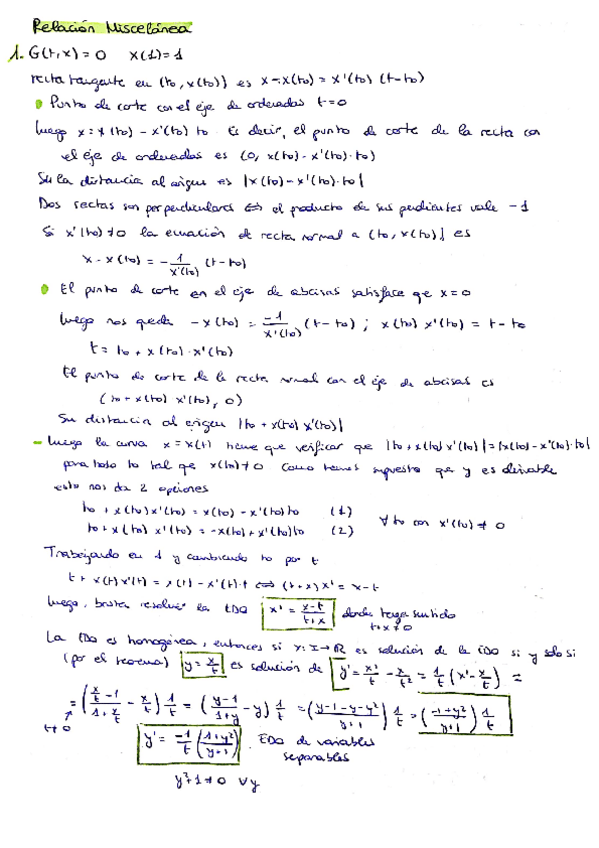 Relación Miscelánea
1. G(t,x) = 0   x(1) = 1
recta tangente en (to, x(to)) es x - x(to) = x'(to) (t-to)
• Punto de corte con el eje de ordenadas t=0
luego x = x(to) - x'(to) to Es decir, el punto de corte de la recta con
el eje de ordenadas es (0, x(to) - x'(to)·to)
Su la distancia al origen es |x(to) - x'(to)·to|
Dos rectas son perpendiculares ⟺ el producto de sus pendientes vale -1
Si x'(to) ≠ 0 la ecuación de recta normal a (to, x(to)) es
x - x(to) = - 1/x'(to) (t-to)
• El punto de corte en el eje de abcisas satisface qe x=0
luego nos queda -x(to) = -1/x'(to) (t-to) ; x(to) x'(to) = t-to
t = to + x(to)·x'(to)
El punto de corte de la recta normal con el eje de abcisas es
(to + x(to) x'(to), 0)
Su distancia al origen |to + x(to) x'(to)|
- luego la curva x = x(t) tiene que verificar que |to + x(to) x'(to)| = |x(to) - x'(to)·to|
para todo to tal que x'(to) ≠ 0 Como hemos supuesto que y es derivable
esto nos da 2 opciones
to + x(to) x'(to) = x(to) - x'(to) to   (1)
to + x(to) x'(to) = -x(to) + x'(to) to   (2)   ∀ to con x'(to) ≠ 0
Trabajando en 1 y cambiando to por t
t + x(t) x'(t) = x(t) - x'(t)·t ⟺ (t+x) x' = x-t
luego, basta resolver la EDO x' = (x-t)/(t+x) donde tenga sentido
t+x ≠ 0
La EDO es homogénea, entonces si x: I → ℝ es solución de la EDO si y solo si
(por el teorema) y = x/t es solución de y' = x'/t - x/t² = 1/t (x' - x/t) =
= ((x/t - 1)/(1 + x/t) - x/t) 1/t = ((y-1)/(1+y) - y) 1/t = ((y-1-y-y²)/(y+1)) 1/t = (-1+y²)/(y+1) 1/t
t≠0
y' = -1/t ((1+y²)/(y+1)) EDO de variables
separables
y²+1 ≠ 0 ∀y